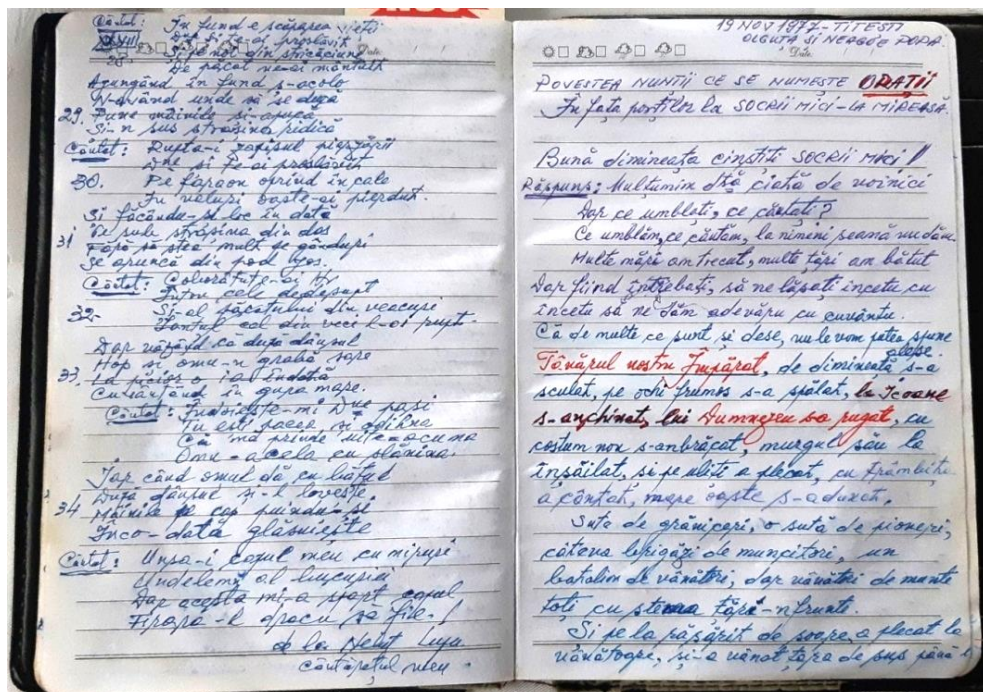 Cântat: În fund e scăparea vieți
XXVII Dne și te-ai proslăvit
28. Și pe noi din stricăciune
De păcat ne-ai mântuit
Date
Ajungând în fund s-acolo
N-având unde să se ducă
29. Pune mâinile și-apucă
Și-n sus strașina ridică
Cântat: Rupta-i zapisul
Dne și te-ai proslăvit
30. Pe faraon oprind în cale
În valuri oaste-ai pierdut.
Și făcându-și loc în dată
31 Pe sub strașina din dos
Fără să stea mult se gândi
Se aruncă din pod jos.
Cântat:
Întru cele dedesupt
32. Și-al păcatului din veacuri
Lanțul cel din veci l-ai rupt.
Dar văzând că după dânsul
Hop și omu-n grabă sare
33. La picior o ia îndată
Cuvântând în gura mare.
Cântat: Dne pași
Tu ești pacea, și odihna
Că mă prinde uite-acuma
Omu-acela cu slănina.
Iar când omul dă cu bâtul
După dânsul și-l lovește
34 Mâinile pe cap puindu-și
Înco-dată glăsuiește
Cântat: Unsa-i capul meu cu miruri
Undelemn al bucuriei
Dar acesta mi-a spart capul
Firar-l dracu să fie!
de la Nelut
cântărețul meu.
19 NOV 1977 - TITESTI
OLGUȚA ȘI NEAGOE POPA.
Date
POVESTEA NUNTII CE SE NUMEȘTE ORAȚII
În fața porților la SOCRII MICI - LA MIREASĂ.
Bună dimineața cinstiți SOCRII MICI!
Răspuns: Mulțumim dtă ciată de voinici
Dar ce umblați, ce căutați?
Ce umblăm, ce căutăm, la nimeni seamă nu dăm.
Multe mări am trecut, multe țări am bătut
Dar fiind întrebați, să ne lăsați încetu cu
încetu să ne dăm adevăru cu cuvântu.
Că de multe ce sunt, și dese, nu le vom putea spune
alese.
Tânărul nostru Împărat, de dimineață s-a
sculat, pe ochi frumos s-a spălat, la Icoane
s-anchinat, lui Dumnezeu s-a rugat, cu
costum nou s-ambrăcat, murgul său la
înșăilat, și pe uliță a plecat, cu trâmbița
a cântat, mare oaste s-adunat.
Suta de grăniceri, o sută de pioneri,
câteva brigăzi de muncitori, un
batalion de vânători, dar vânători de munte
toți cu stema țării-n frunte.
Și pe la răsărit de soare, a plecat la
vânătoare, și-a vânat țara de sus până